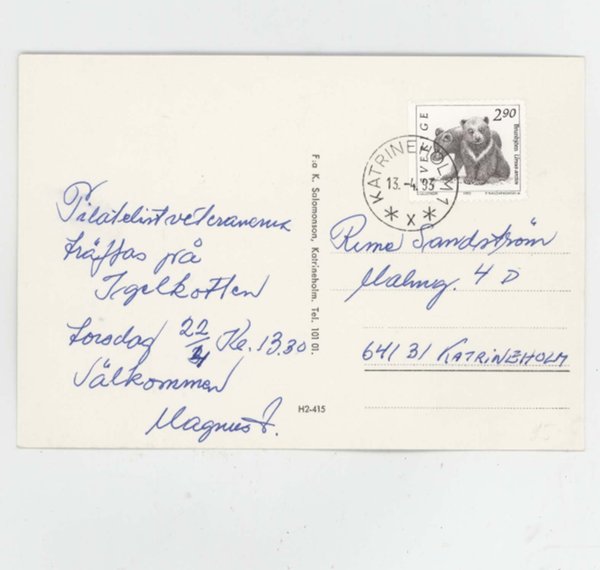 Filatelistveteranerna
träffas på
Igelkotten
torsdag 22/4 Kl. 13.30
Välkommen
Magnus
F:a K. Salomonson, Katrineholm. Tel. 101 01.
H2-415
SVERIGE
2.90
Brunbjörn Ursus arctos
KATRINEHOLM 1
13.-4.93
* X *
Rune Sandström
Malmg. 4 D
641 31 KATRINEHOLM